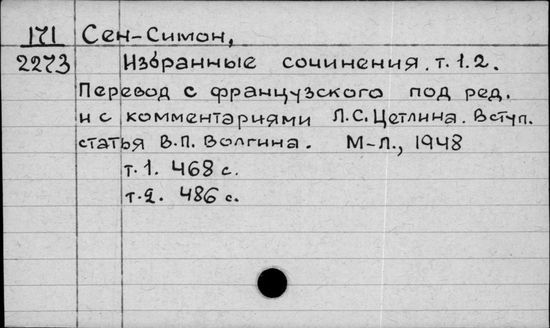 171 Сен-Симон,
2273 Избранные сочинения. т. 1. 2.
Перевод с французского под ред.
и с комментариями Л.С. Цетлина. Вступ.
статья В.П. Волгина. М-Л., 1948
т. 1. 468 с.
т. 2. 486 с.